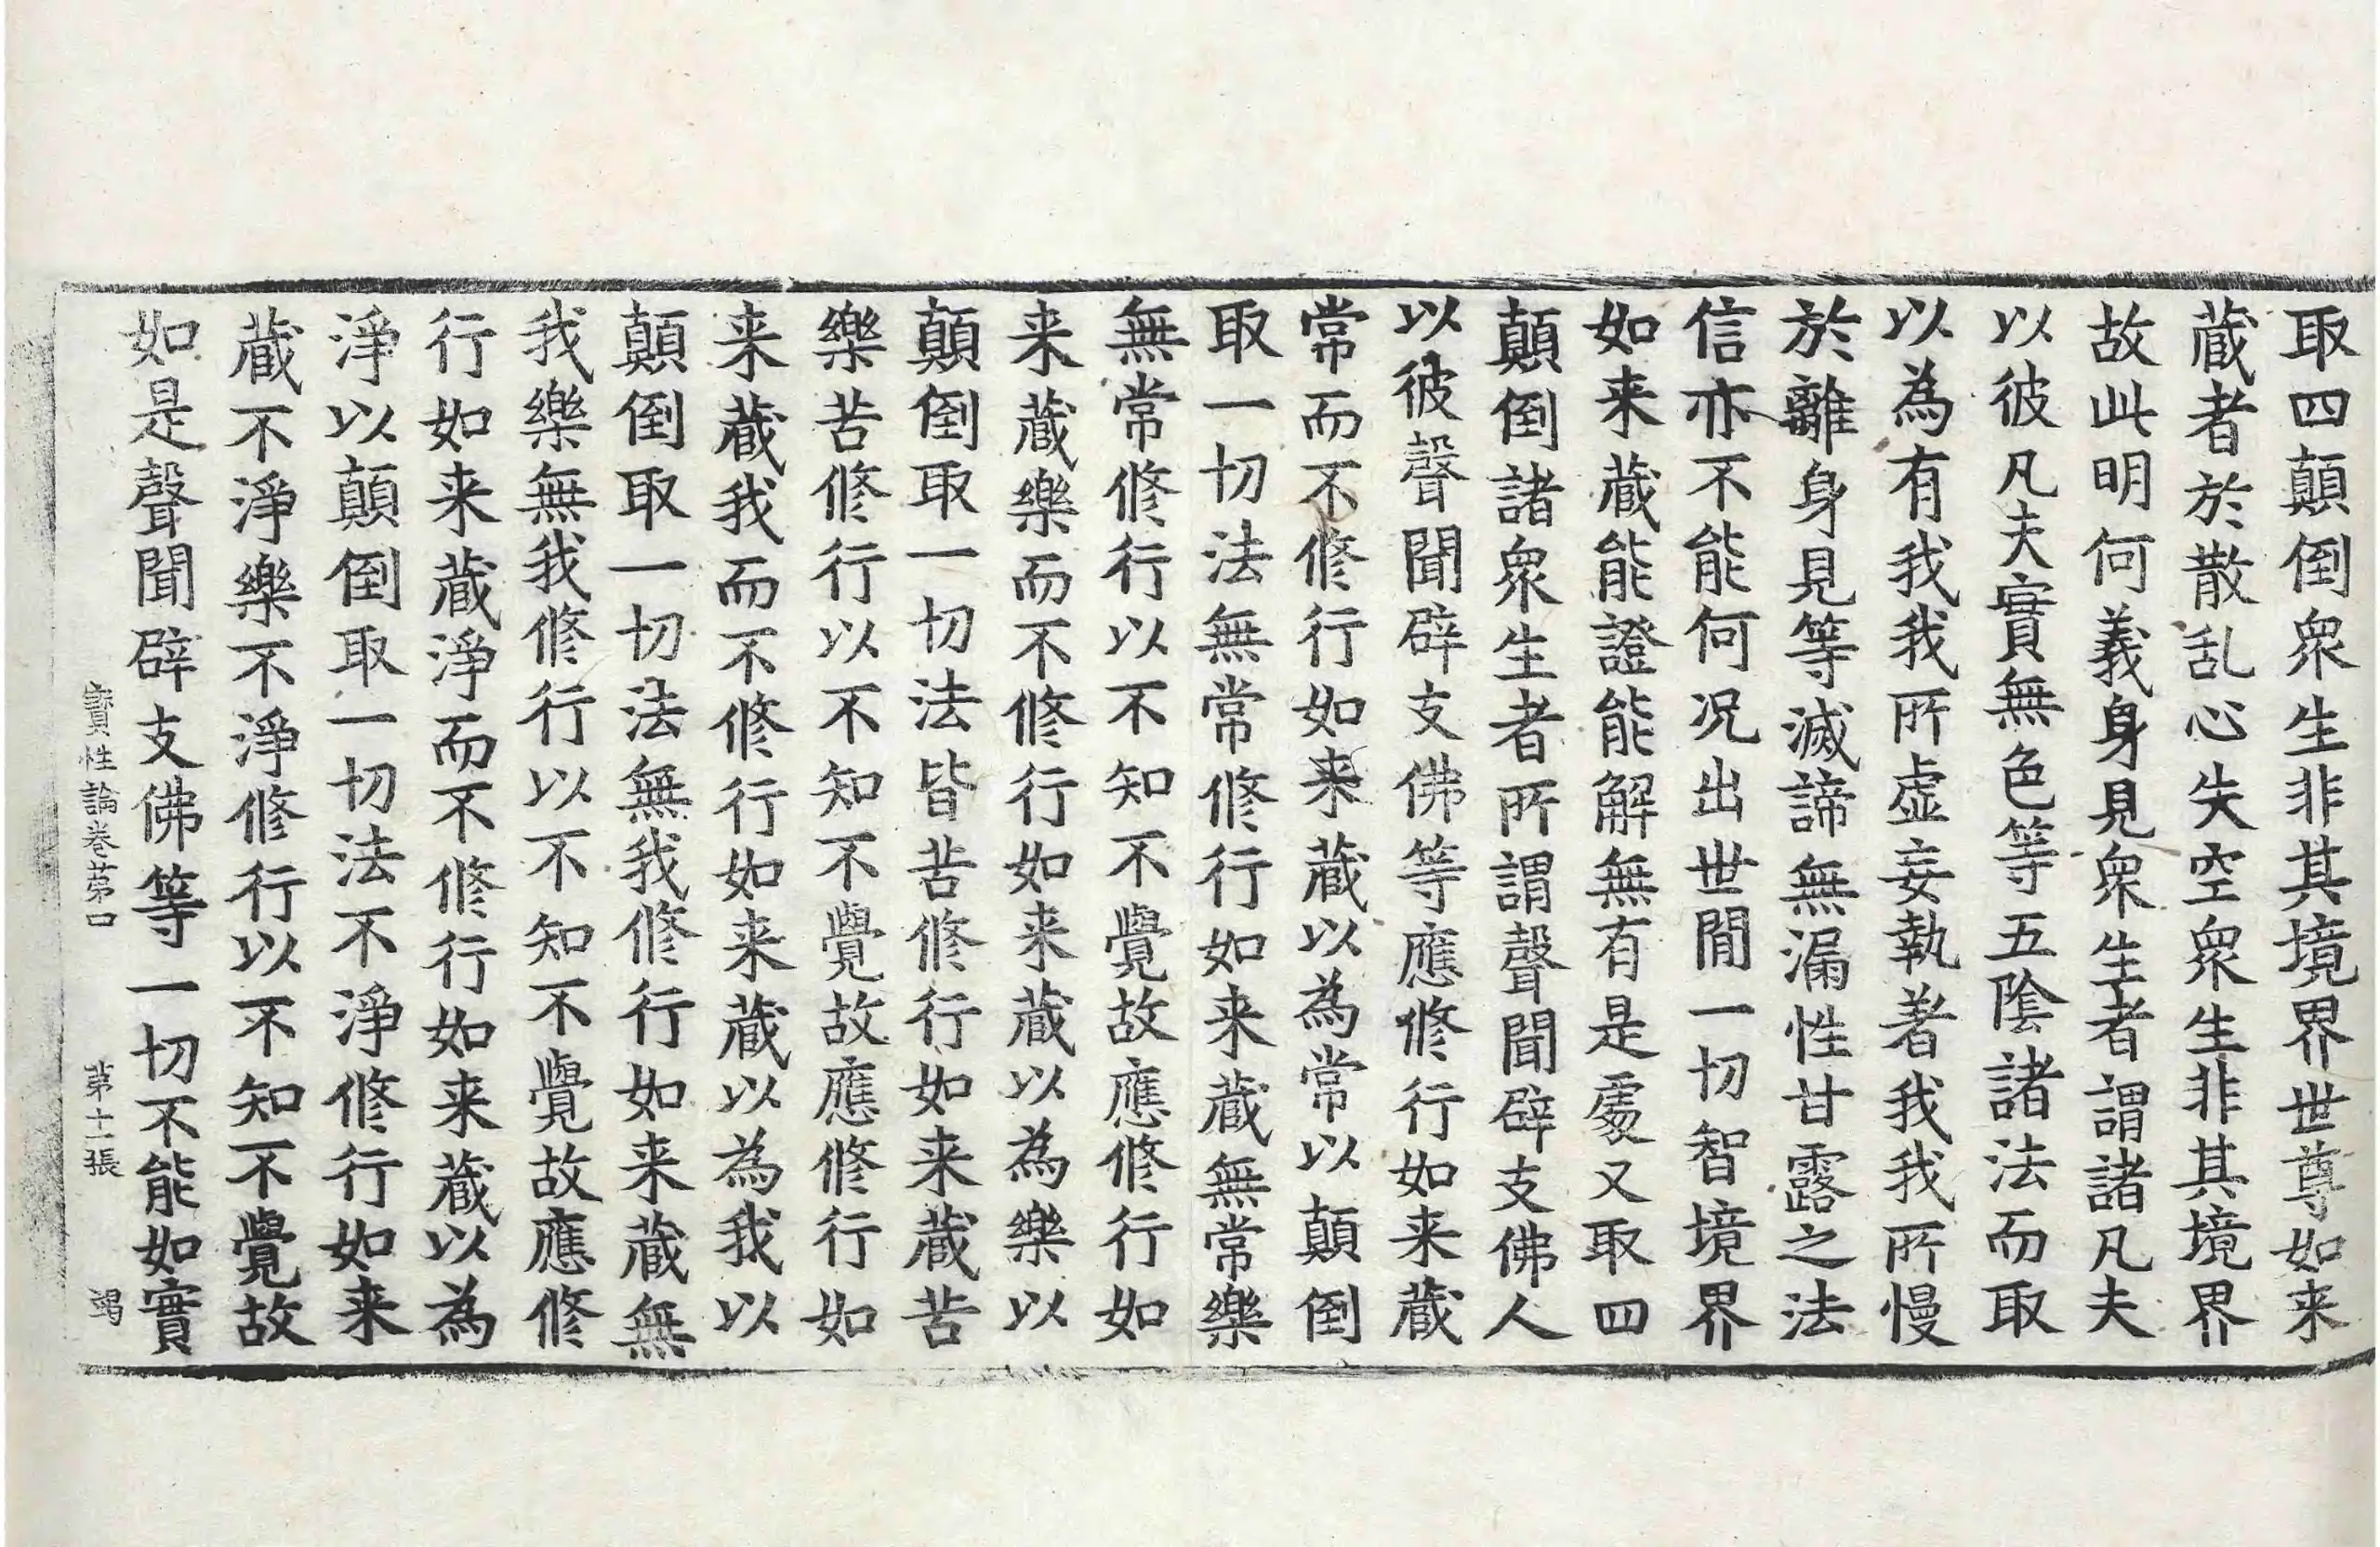 取四顛倒衆生非其境界世尊如来
蔵者於散乱心失空衆生非其境界
故此明何義身見衆生者謂諸凡夫
以彼凡夫實無色等五陰諸法而取
以為有我我所虚妄執著我我所慢
於離身見等滅諦無漏性甘露之法
信亦不能何况出世間一切智境界
如来蔵能證能解無有是處又取四
顛倒諸衆生者所謂聲聞辟支佛人
以彼聲聞辟支佛等應修行如来蔵
常而不修行如来蔵以為常以顛倒
取一切法無常修行如来蔵無常樂
無常修行以不知不覺故應修行如
来蔵樂而不修行如来蔵以為樂以
顛倒取一切法皆苦修行如来蔵苦
樂苦修行以不知不覺故應修行如
来蔵我而不修行如来蔵以為我以
顛倒取一切法無我修行如来蔵無
我樂無我修行以不知不覺故應修
行如来蔵淨而不修行如来蔵以為
淨以顛倒取一切法不淨修行如来
蔵不淨樂不淨修行以不知不覺故
如是聲聞辟支佛等一切不能如實
寶性論卷苐口 苐十一張 竭